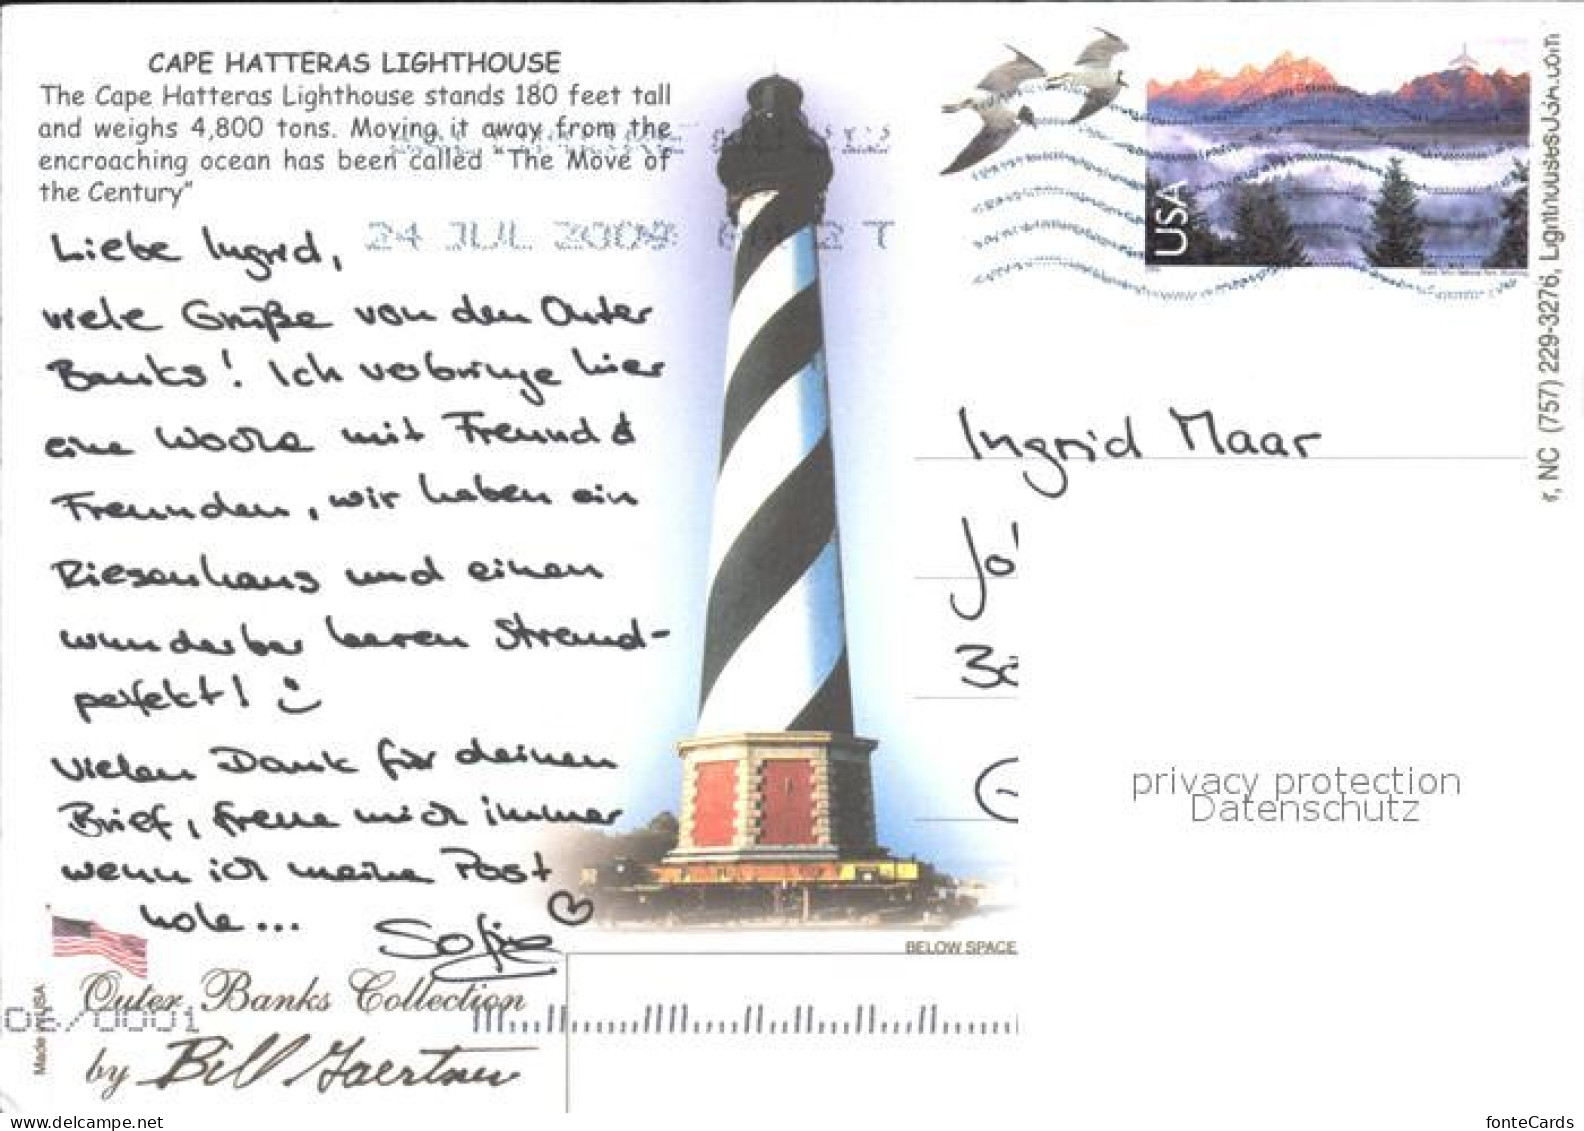 CAPE HATTERAS LIGHTHOUSE
The Cape Hatteras Lighthouse stands 180 feet tall
and weighs 4,800 tons. Moving it away from the
encroaching ocean has been called "The Move of
the Century"
24 JUL 2009
Liebe Ingrid,
viele Grüße von den Outer
Banks! Ich verbringe hier
eine Woche mit Freund &
Freunden, wir haben ein
Riesenhaus und einen
wunderbar leeren Strand-
perfekt!
Vielen Dank für deinen
Brief, freue mich immer
wenn ich meine Post
hole...
Sofie
Outer Banks Collection
by Bill Gaertner
Made in USA
USA
Ingrid Maar
Jo
BELOW SPACE
, NC (757) 229-3276, LighthousesUSA.com
privacy protection
Datenschutz
www.delcampe.net
fonteCards